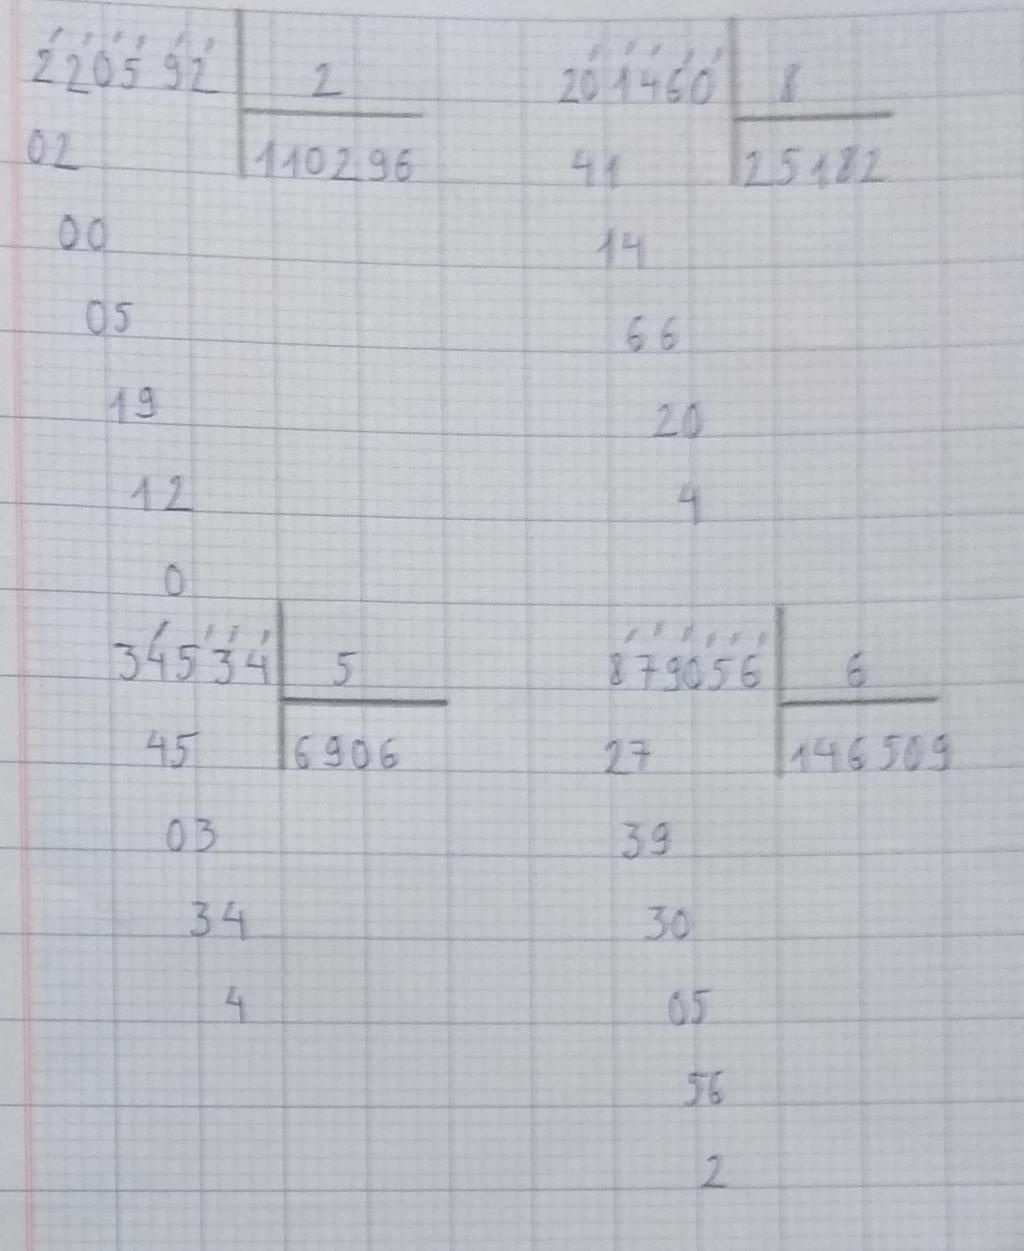 220592 2
02 110296
00
05
19
12
0
201460 8
41 25182
14
66
20
4
34534 5
45 6906
03
34
4
879056 6
27 146509
39
30
05
56
2